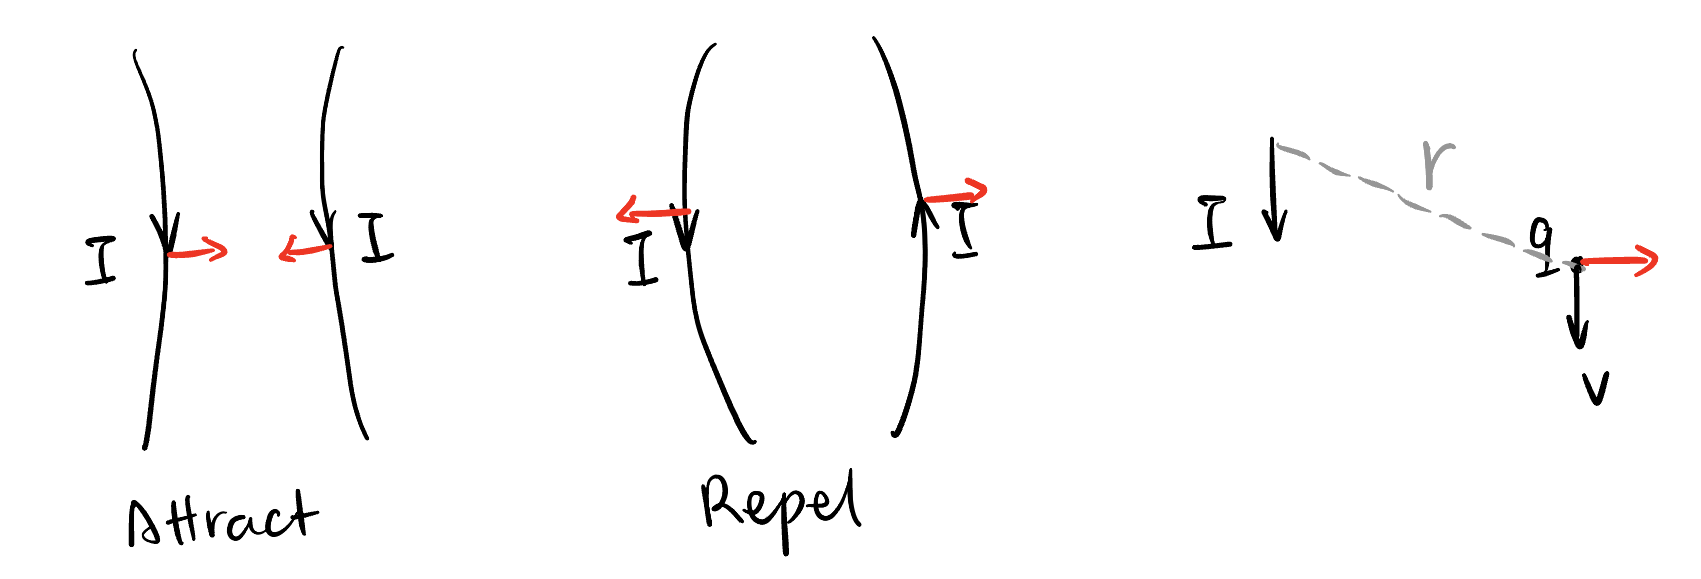 I I
Attract
I I
Repel
I r q
v